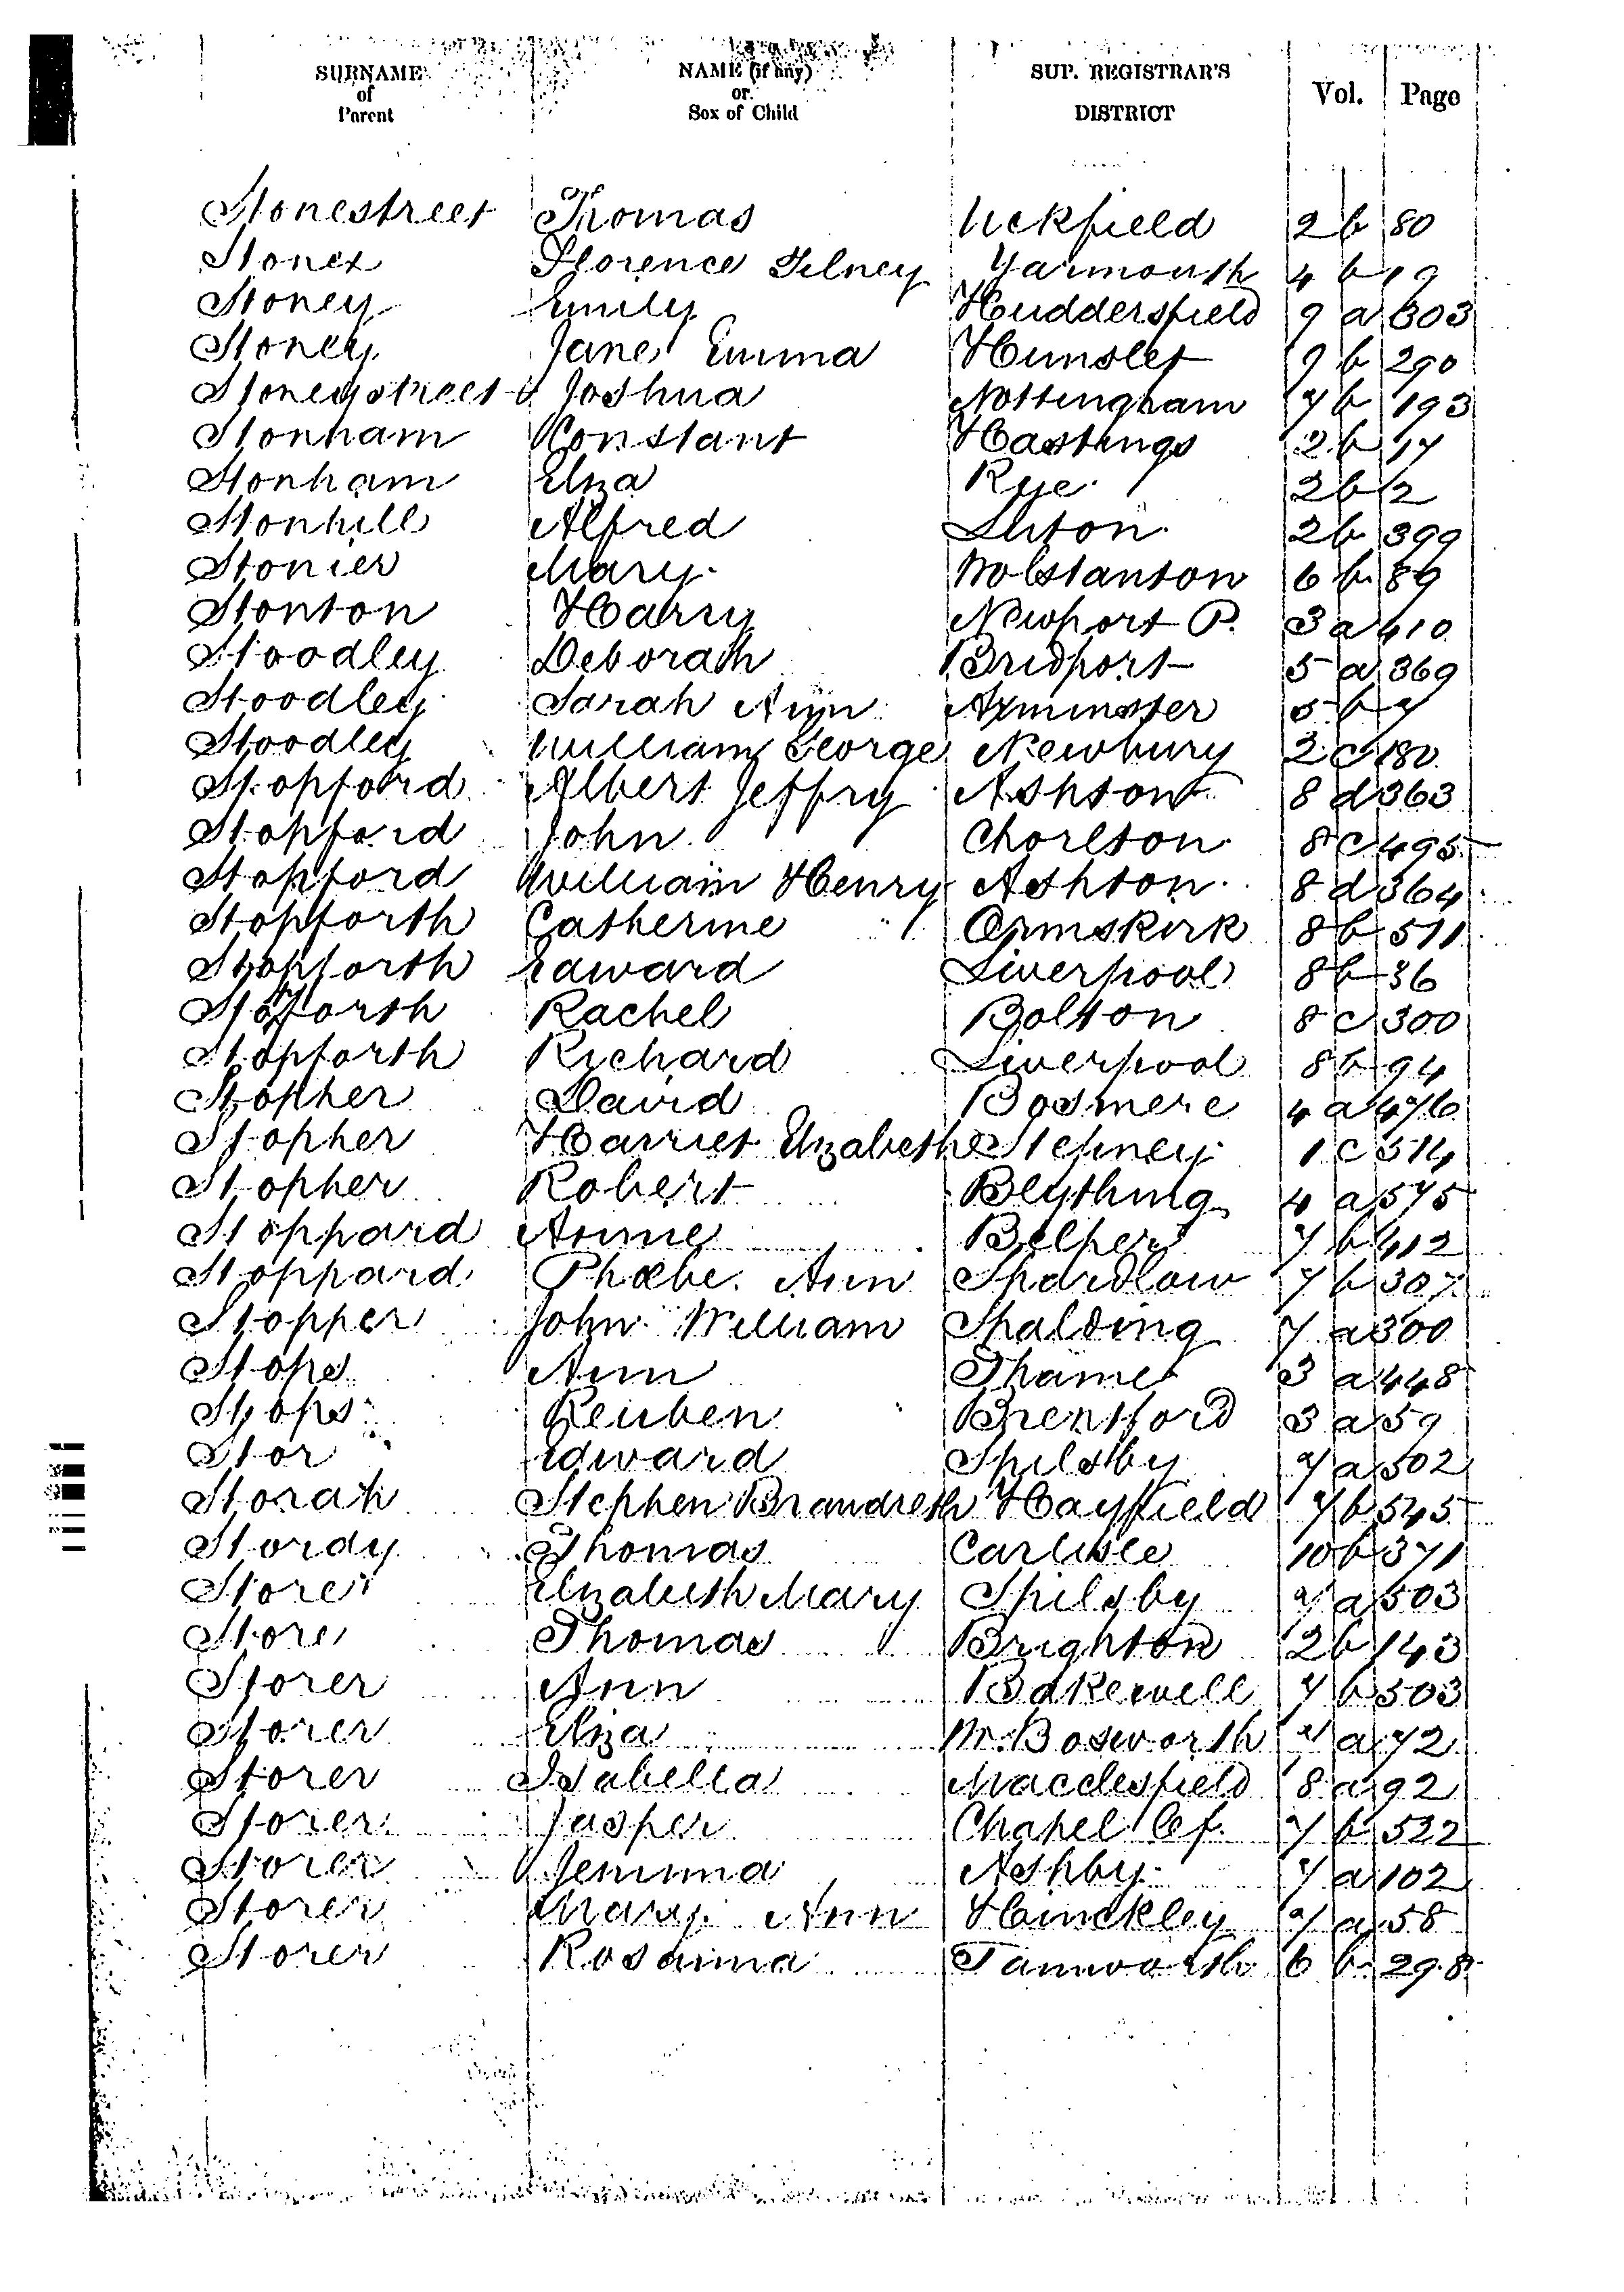 SURNAME of Parent NAME (if any) or Sex of Child SUP. REGISTRAR'S DISTRICT Vol. Page
Stonestreet Thomas Uckfield 2 b 80
Stonex Florence Tilney Yarmouth 4 b 19
Stoney Emily Huddersfield 9 a 303
Stoney Jane Emma Hunslet 9 b 290
Stoneystreet Joshua Nottingham 7 b 193
Stonham Constant Hastings 2 b 17
Stonham Eliza Rye 2 b 2
Stonhill Alfred Luton 2 b 399
Stonier Mary Wolstanton 6 b 89
Stonton Harry Newport P. 3 a 410
Stoodley Deborah Bridport 5 a 369
Stoodley Sarah Ann Axminster 5 b 7
Stoodley William George Newbury 2 c 180
Stopford Albert Jeffry Ashton 8 d 363
Stopford John Chorlton 8 c 495
Stopford William Henry Ashton 8 d 364
Stopforth Catherine Ormskirk 8 b 511
Stopforth Edward Liverpool 8 b 36
Stopforth Rachel Bolton 8 c 300
Stopforth Richard Liverpool 8 b 94
Stopher David Bosmere 4 a 476
Stopher Harriet Elizabeth Stepney 1 c 514
Stopher Robert Blything 4 a 575
Stoppard Annie Belper 7 b 412
Stoppard Phœbe Ann Shardlow 7 b 307
Stopper John William Spalding 7 a 300
Stops Ann Thame 3 a 448
Stops Reuben Brentford 3 a 59
Stor Edward Spilsby 7 a 502
Storah Stephen Brandreth Hayfield 7 b 545
Stordy Thomas Carlisle 10 b 371
Store Elizabeth Mary Spilsby 7 a 503
Store Thomas Brighton 2 b 143
Storer Ann Bakewell 7 b 503
Storer Eliza M. Bosworth 7 a 72
Storer Isabella Macclesfield 8 a 92
Storer Jasper Chapel le f. 7 b 522
Storer Jemima Ashby 7 a 102
Storer Mary Ann Hinckley 7 a 58
Storer Rosanna Tamworth 6 b 298